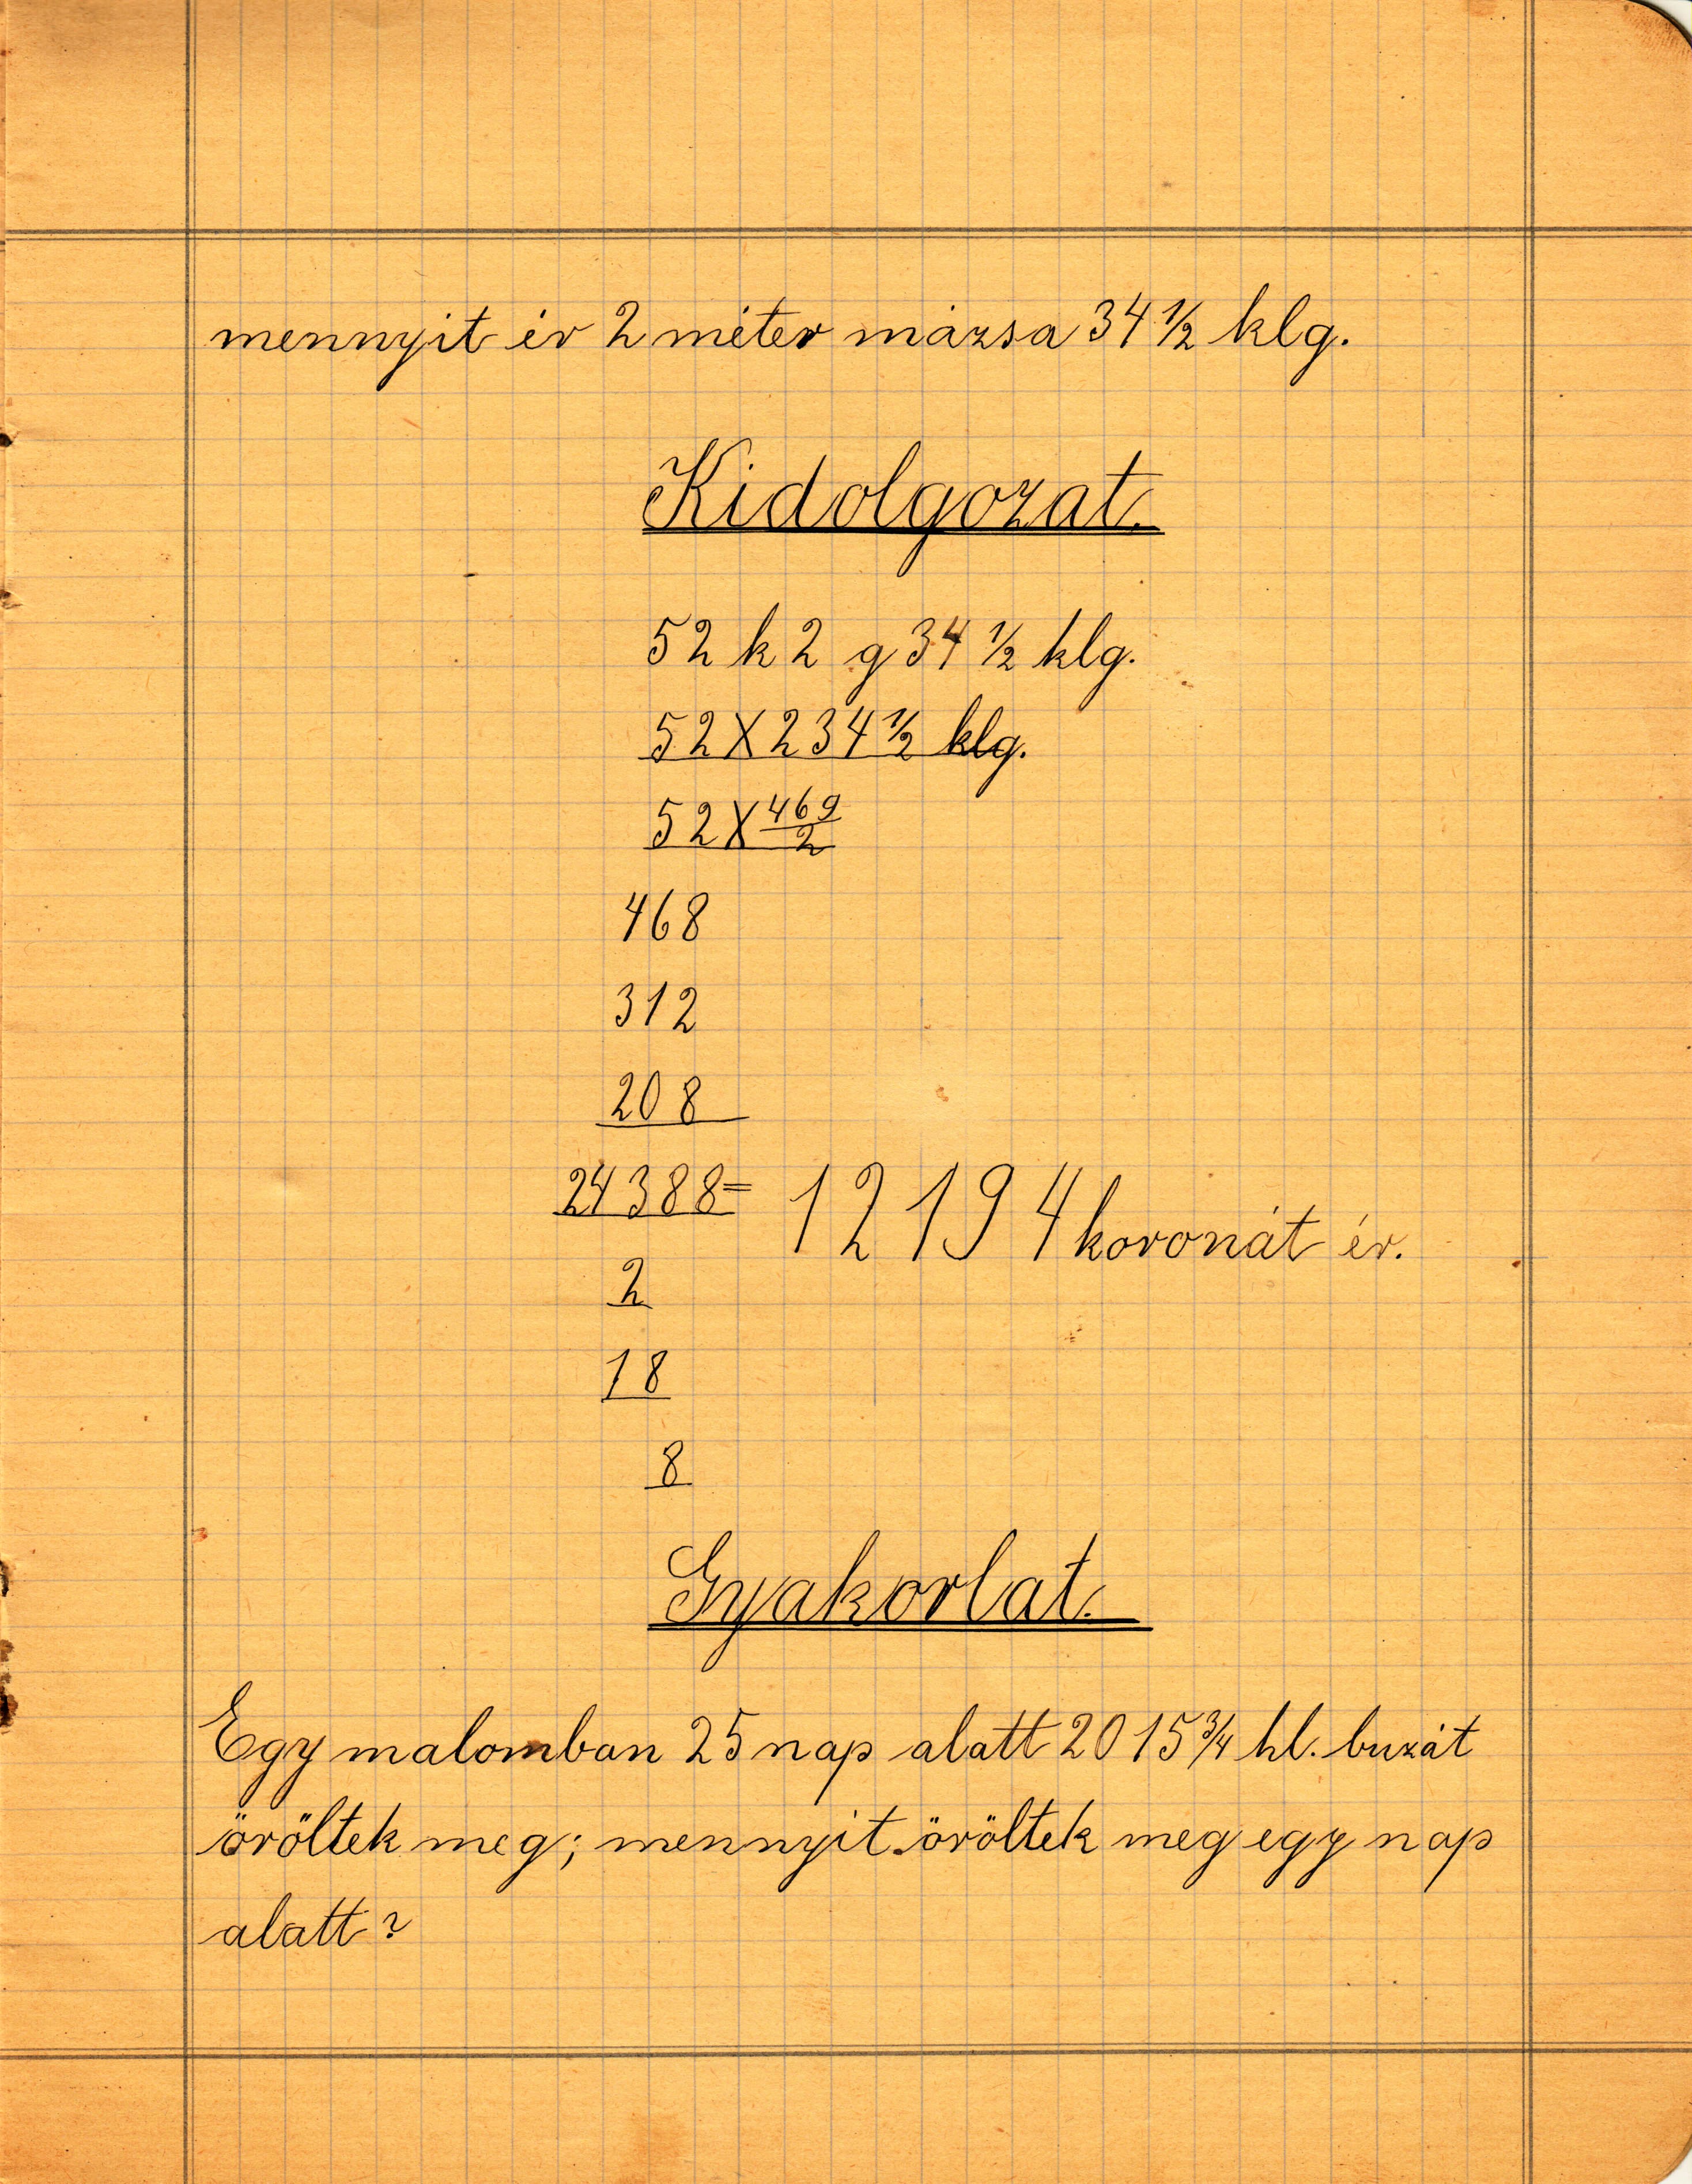 mennyit ér 2 méter mázsa 34 1/2 klg.
Kidolgozat.
52 k 2 q 34 1/2 klg.
52 X 234 1/2 klg.
52 X 469/2
468
312
208
24388 = 12194 koronát ér.
2
18
8
Gyakorlat.
Egy malomban 25 nap alatt 2015 3/4 hl. buzát
öröltek meg; mennyit öröltek meg egy nap
alatt?